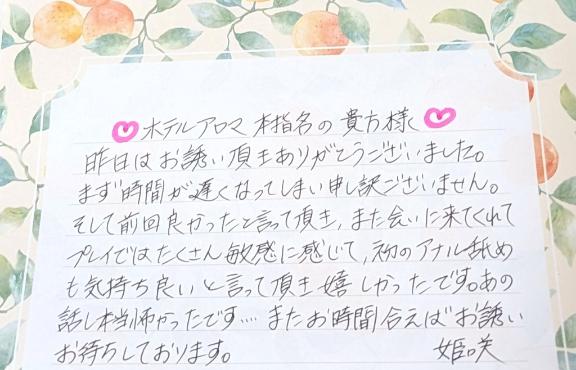 ホテルアロマ 本指名の貴方様
昨日はお誘い頂きありがとうございました。
まず時間が遅くなってしまい申し訳ございません。
そして前回良かったと言って頂き、また会いに来てくれて
プレイではたくさん敏感に感じて、初のアナル舐め
も気持ち良いと言って頂き嬉しかったです。あの
話し本当怖かったです…. またお時間合えばお誘い
お待ちしております。
姫咲